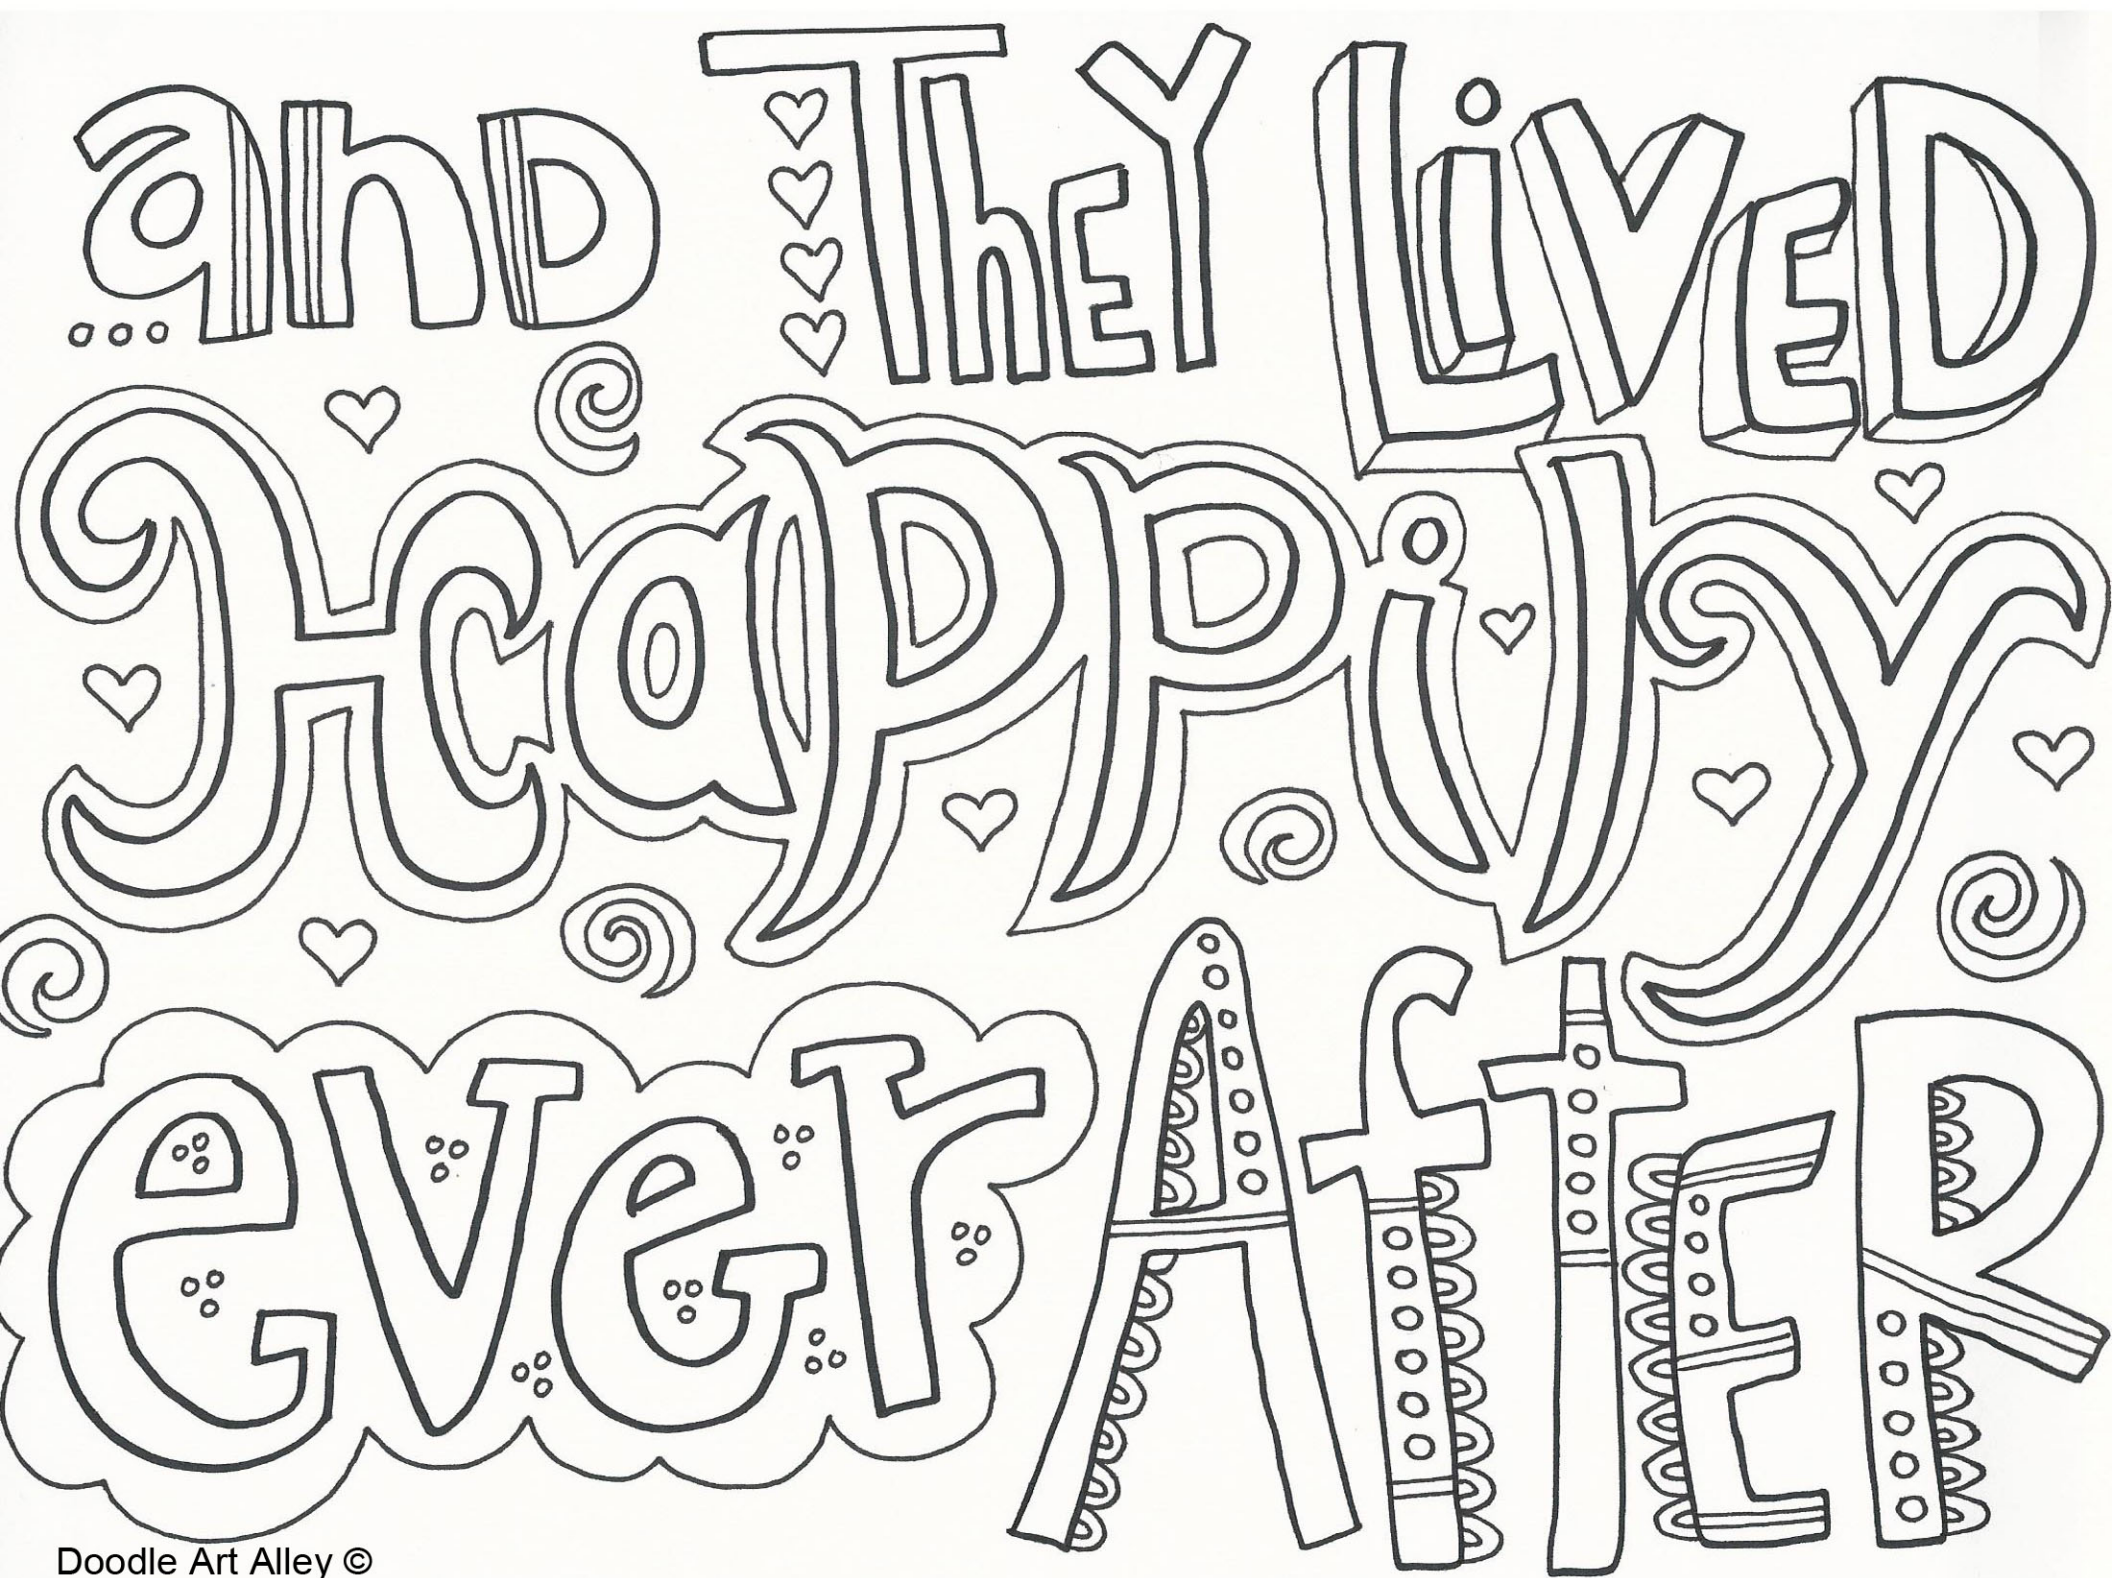 ...and They Lived
Happily
ever After
Doodle Art Alley ©